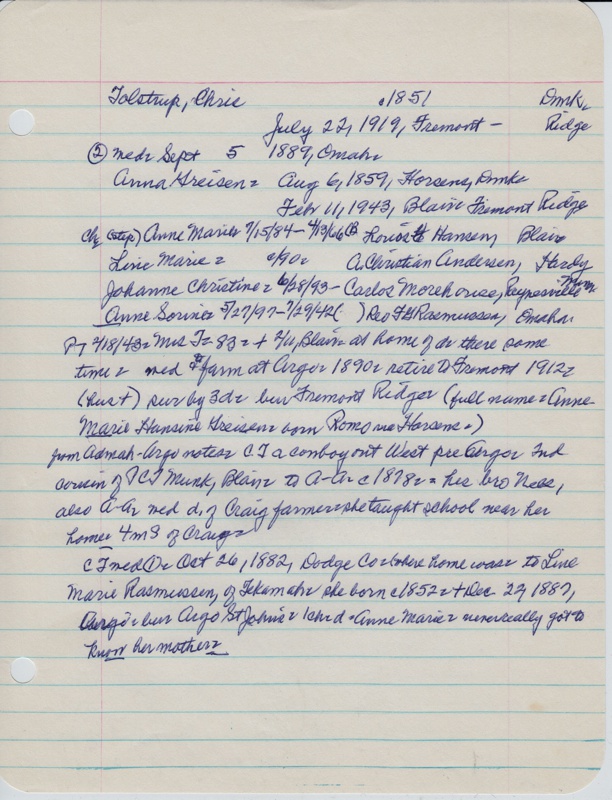 Tolstrup, Chris c1851 Dmk,
July 22, 1919, Fremont - Ridge
② med= Sept 5 1889, Omaha
Anna Greisen= Aug 6, 1859, Horsens, Dmk=
Feb= 11, 1943, Blair= Fremont Ridge
Ch= (step) Anne Marie= 7/15/84- 4/13/66 Louis H Hansen, Blair
Line Marie= c/90= A. Christian Andersen, Hardy
Johanne Christine= 6/28/93- Carlos Morehouse, Paynesville Minn
Anne Sorine= 5/27/97-7/29/42( ) Rev F Rasmussen, Omaha
PT 2/18/43= Mrs T= 83= + 2/11, Blair= at home of d= there some
time= med farm at Argo= 1890= retire D Fremont 1912=
(hus+) sur by 3d= bur Fremont Ridge= (full name= Anne
Marie Hansine Greisen= born Horsens=)
from Admah-Argo notes= CT a cowboy out West pre Argo= 2nd
cousin of PCT Munk, Blair= to A-A= c1878= = his bro Ness,
also A-A= med d. of Craig farmer= she taught school near her
home= 4 m S of Craig=
CT med ①= Oct 26, 1882, Dodge Co= (where home was= to Line
Marie Rasmussen, of Tekamah= she born c1852= + Dec 27, 1887,
Argo= bur Argo St John's= 1 ch= d= Anne Marie= never really got to
know her mother=